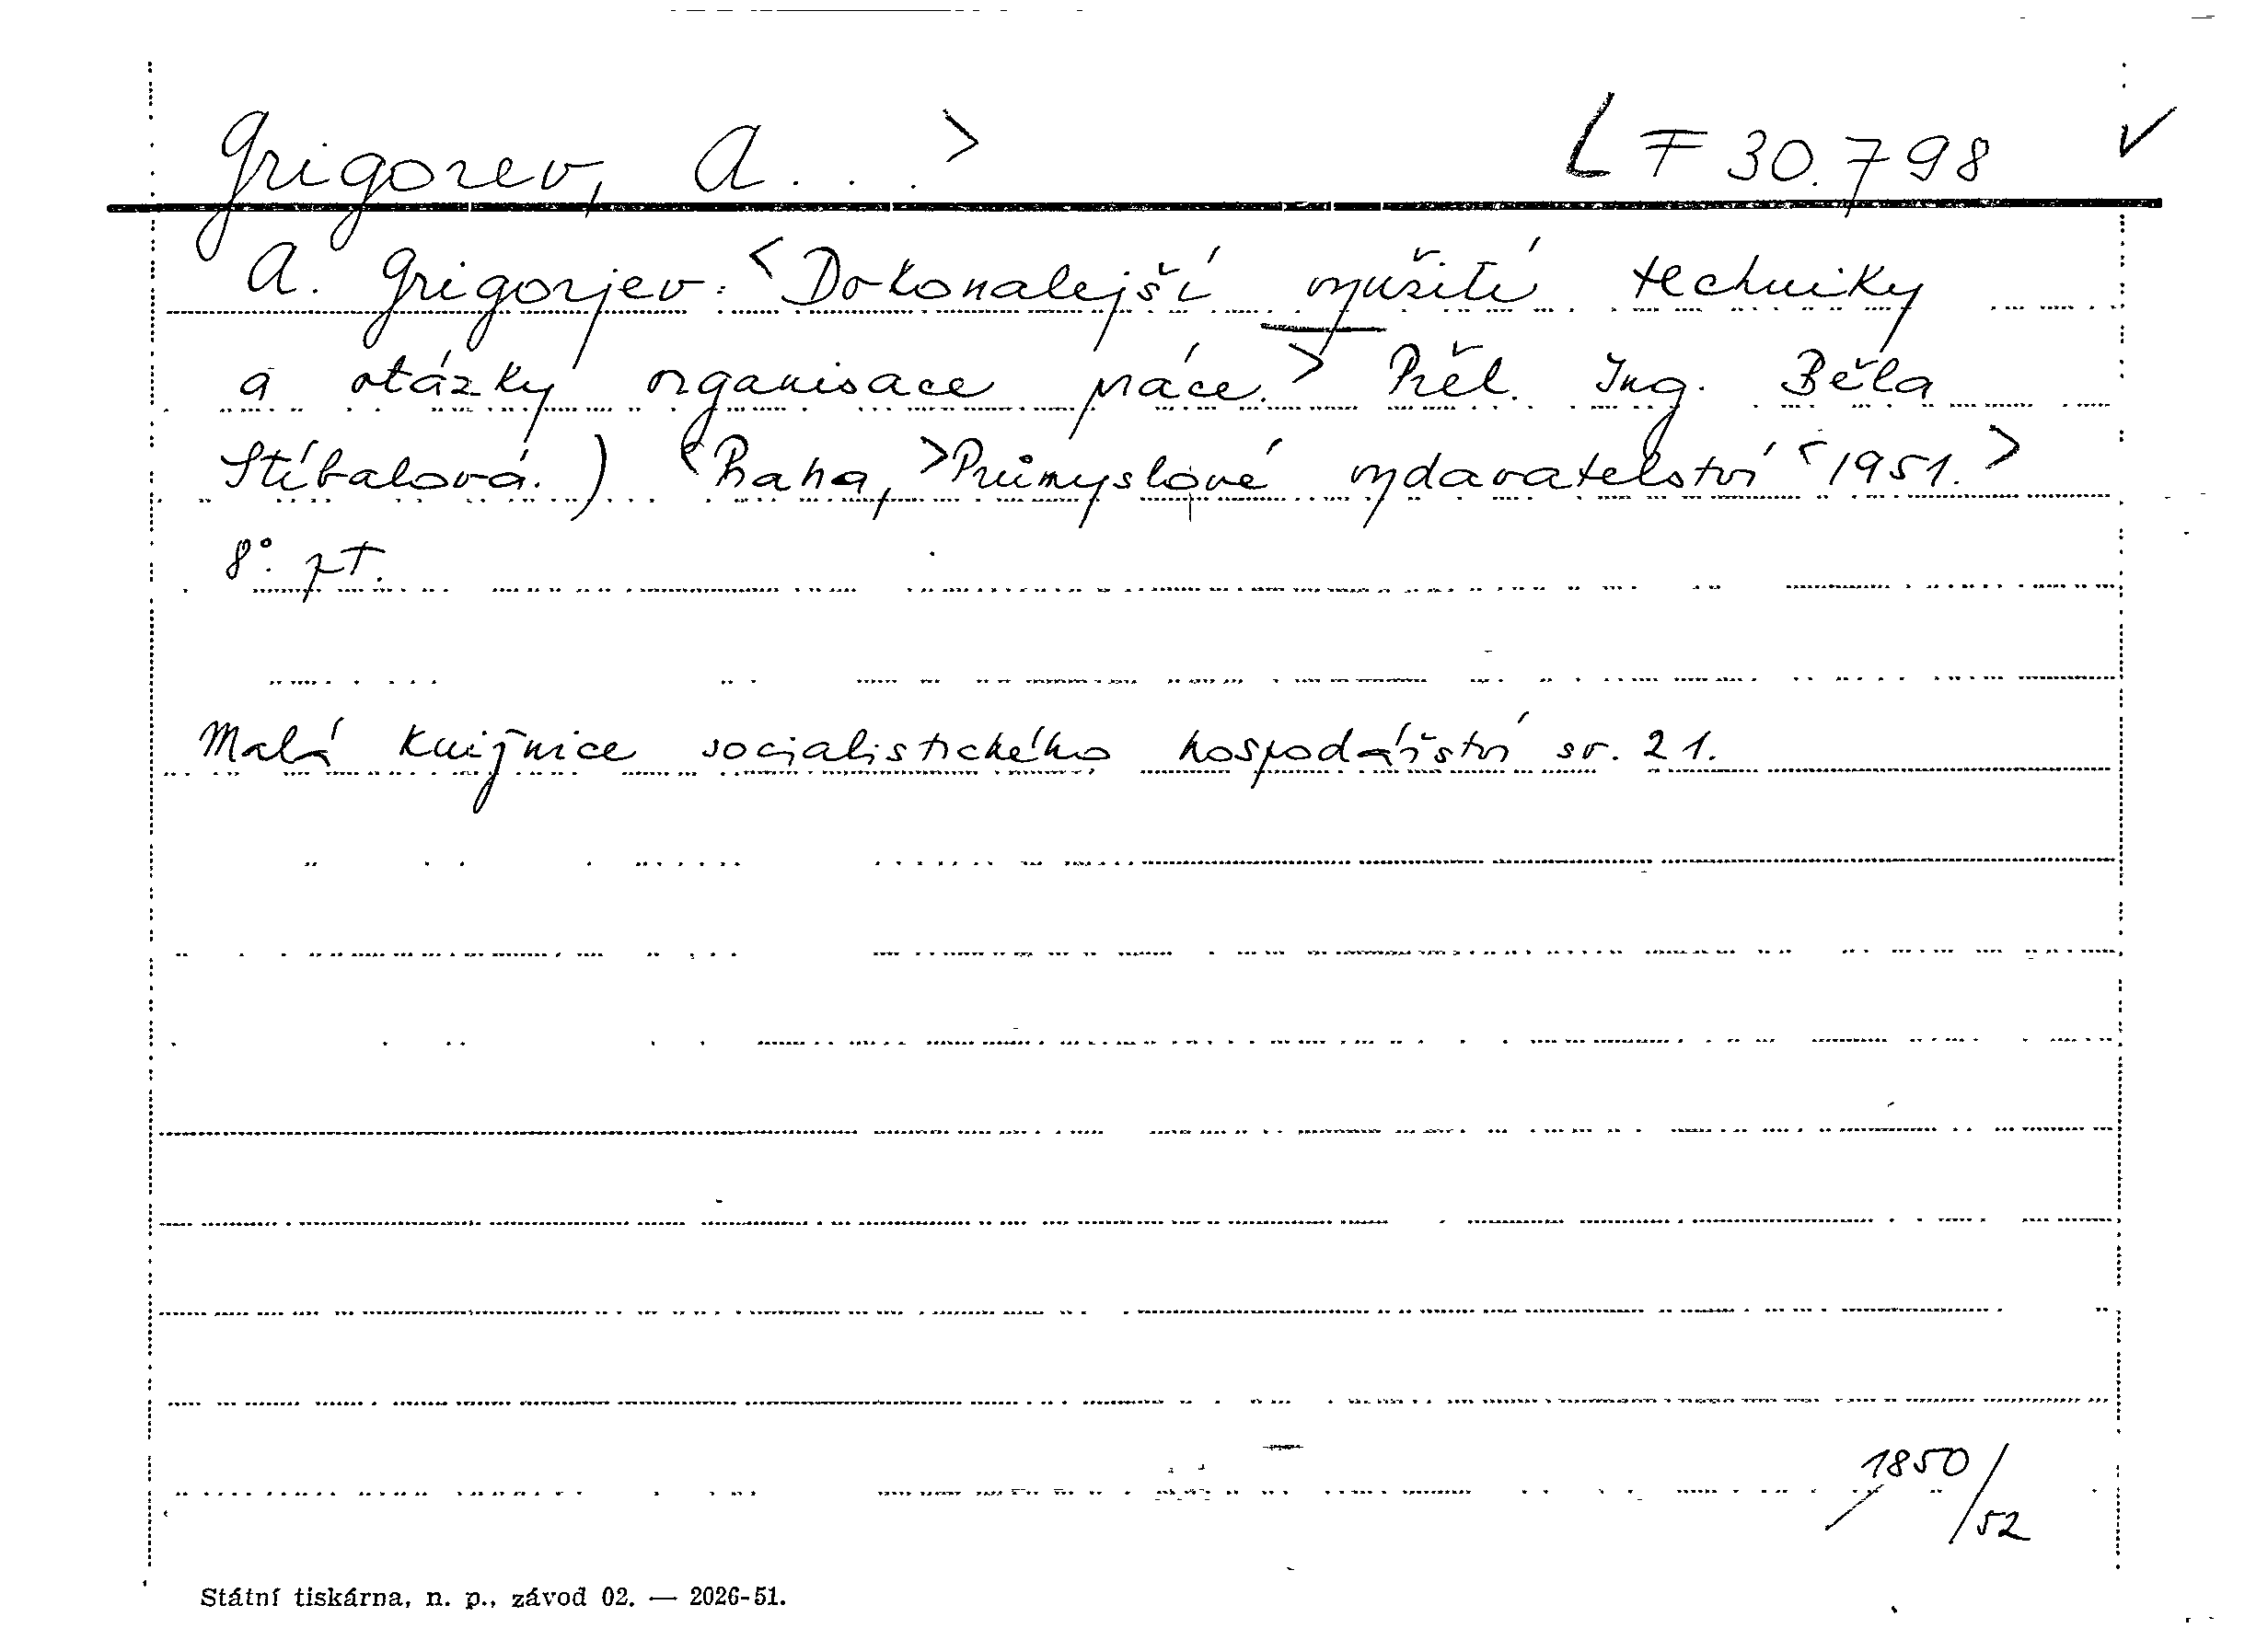 Grigorev, A... > LF 30.798 ✓
A. Grigorjev: <Dokonalejší využití techniky
a otázky organisace práce.> Přel. Ing. Běla
Stíbalová.) <Praha,> Průmyslové vydavatelství <1951.>
8°. pT.
Malá knižnice socialistického hospodářství sv. 21.
1850/52
Státní tiskárna, n. p., závod 02. — 2026-51.